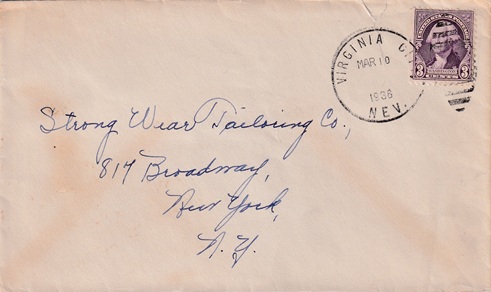 VIRGINIA C
MAR 10
1936
NEV.
3 CENTS 3
Strong Wear Tailoring Co.,
817 Broadway,
New York,
N. Y.